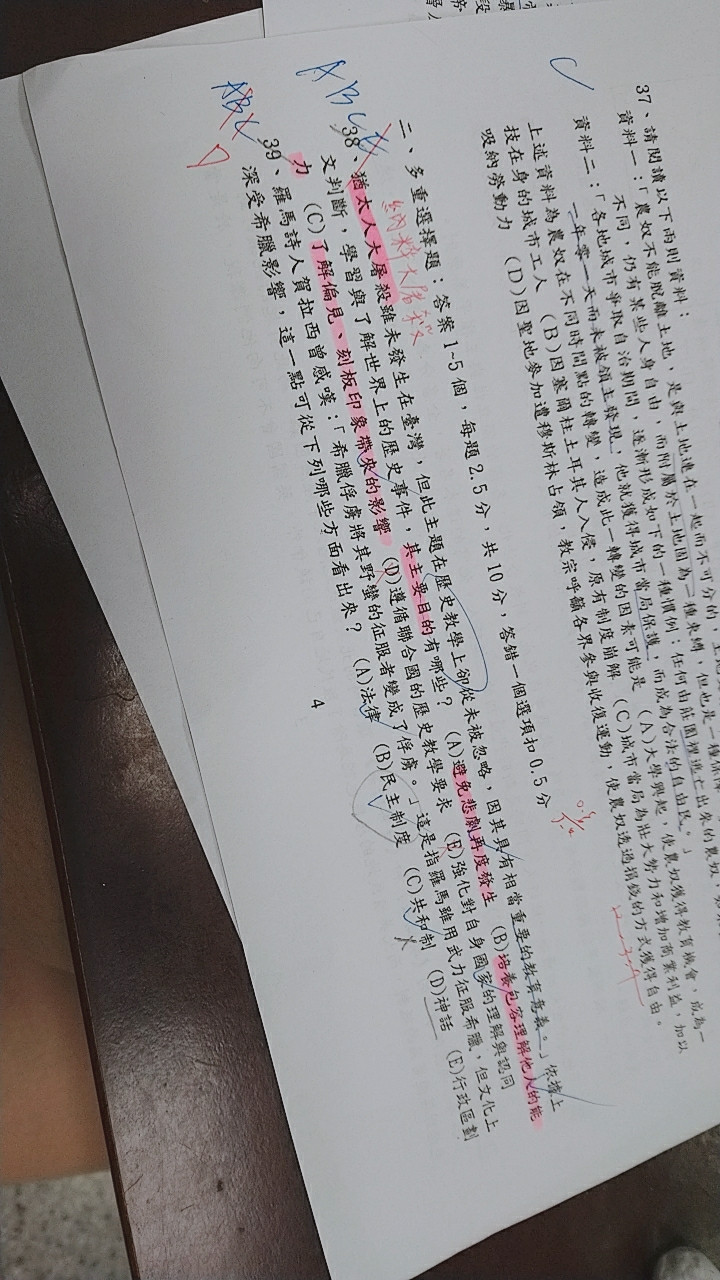 37、請閱讀以下兩則資料：
資料一：「農奴不能脫離土地，是與土地連在一起而不可分的，
不同，仍有某些人身自由，而附屬於土地固為一種束縛，但也是一種保障
資料二：「各地城市爭取自治期間，逐漸形成如下的一種慣例：任何由莊園堙逃亡出來的農奴，
一年零一天而未被領主發現，他就獲得城市當局保護，而成為合法的自由民。」
上述資料為農奴在不同時間點的轉變，造成此一轉變的因素可能是 (A)大學興起，使農奴獲得教育機會，成為一
技在身的城市工人 (B)因塞爾柱土耳其人入侵，原有制度崩解 (C)城市當局為壯大勢力和增加商業利益，加以
吸納勞動力 (D)因聖地參加遭穆斯林占領，教宗呼籲各界參與收復運動，使農奴透過捐錢的方式獲得自由。
C
二、多重選擇題：答案 1~5 個，每題 2.5 分，共 10 分，答錯一個選項扣 0.5 分
納粹大屠殺
ABC
38、猶太人大屠殺雖未發生在臺灣，但此主題在歷史教學上卻從未被忽略，因其具有相當重要的教育意義。」依據上
文判斷，學習與了解世界上的歷史事件，其主要目的有哪些？ (A)避免悲劇再度發生 (B)培養包容理解他人的能
力 (C)了解偏見、刻板印象帶來的影響 (D)遵循聯合國的歷史教學要求 (E)強化對自身國家的理解與認同
ABC
D
39、羅馬詩人賀拉西曾感嘆：「希臘俘虜將其野蠻的征服者變成了俘虜。」這是指羅馬雖用武力征服希臘，但文化上
深受希臘影響，這一點可從下列哪些方面看出來？ (A)法律 (B)民主制度 (C)共和制 (D)神話 (E)行政區劃
4